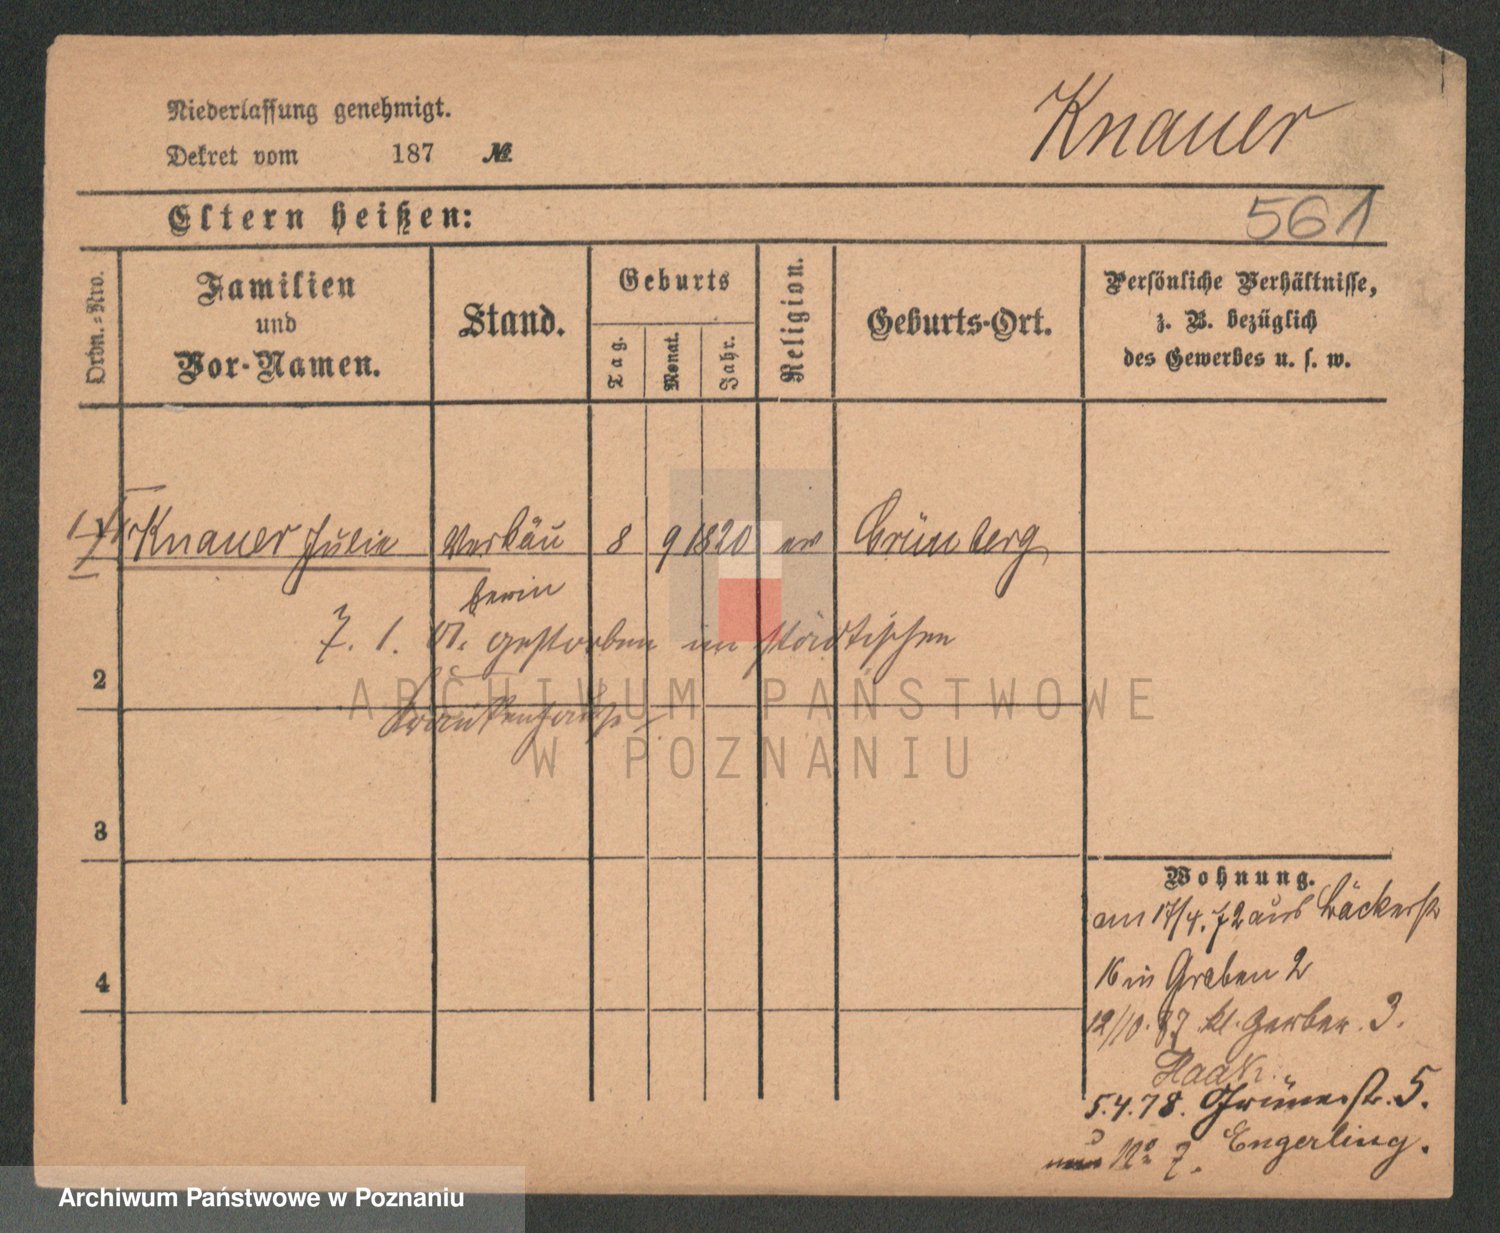 Niederlassung genehmigt.
Dekret vom 187 №
Knauer
Eltern heißen:
561
Ordn.-Nro.
Familien
und
Vor-Namen.
Stand.
Geburts
Tag.
Monat.
Jahr.
Religion.
Geburts-Ort.
Persönliche Verhältnisse,
z. B. bezüglich
des Gewerbes u. s. w.
1 Knauer Julie Verkäu 8 9 1820 ev Grünberg
ferin
7. 1. gestorben im städtischen
2
Krankenhause
ARCHIWUM PAŃSTWOWE
W POZNANIU
3
Wohnung.
am 17/4. 72 aus Bäckerstr
4
16 in Graben 2
12/10. kl. Gerber. 3.
Haak.
5.4.78. Grünestr. 5.
Engerling.
No 7.
Archiwum Państwowe w Poznaniu